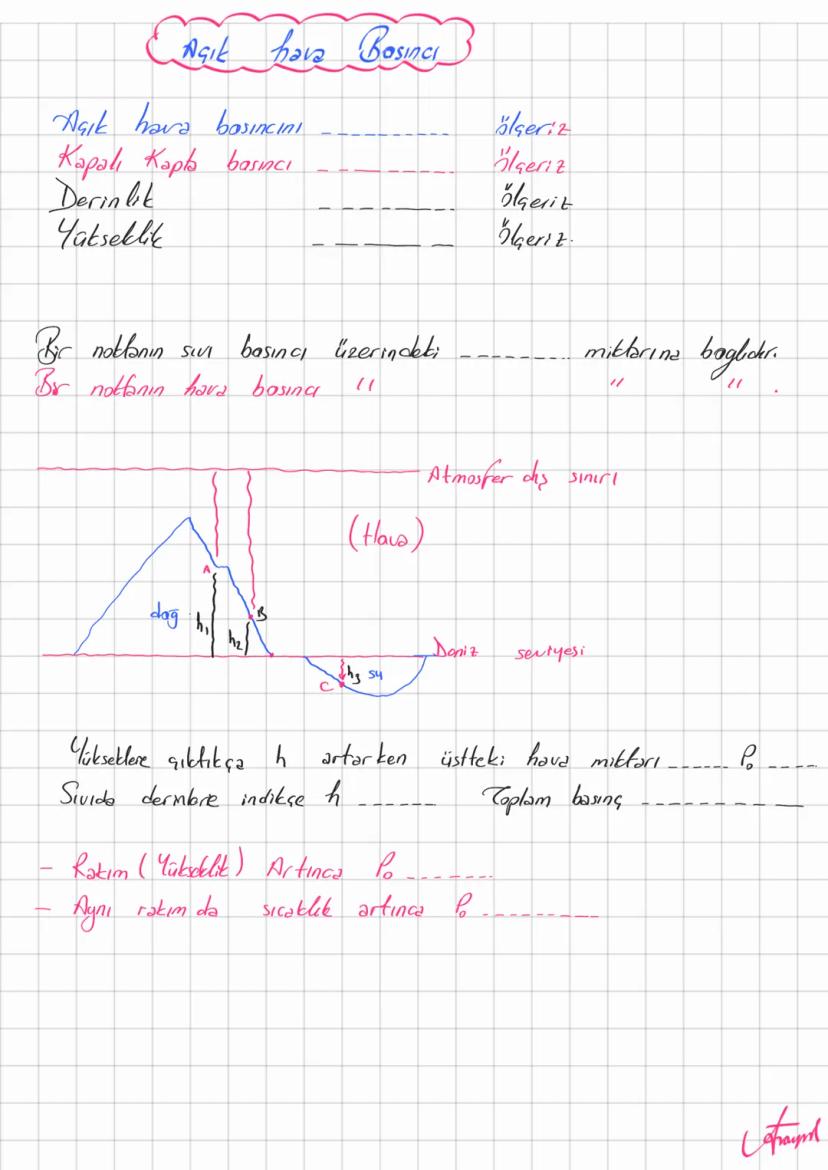 Açık hava Basıncı
Açık hava basıncını ---------- ölçeriz
Kapalı Kapta basıncı ---------- ölçeriz
Derinlik ---------- ölçeriz
Yükseklik ---------- ölçeriz.
Bir noktanın sıvı basıncı üzerindeki --------- miktarına bağlıdır.
Bir noktanın hava basıncı " " " .
Atmosfer dış sınırı
(Hava)
A
dağ h₁ h₂ B
Deniz seviyesi
C h₃ su
Yükseklere çıktıkça h artarken üstteki hava miktarı ------ P₀ ----
Sıvıda derinlere indikçe h ------ Toplam basınç ----------
- Rakım (Yükseklik) Artınca P₀ -------
- Aynı rakım da sıcaklık artınca P₀ ----------